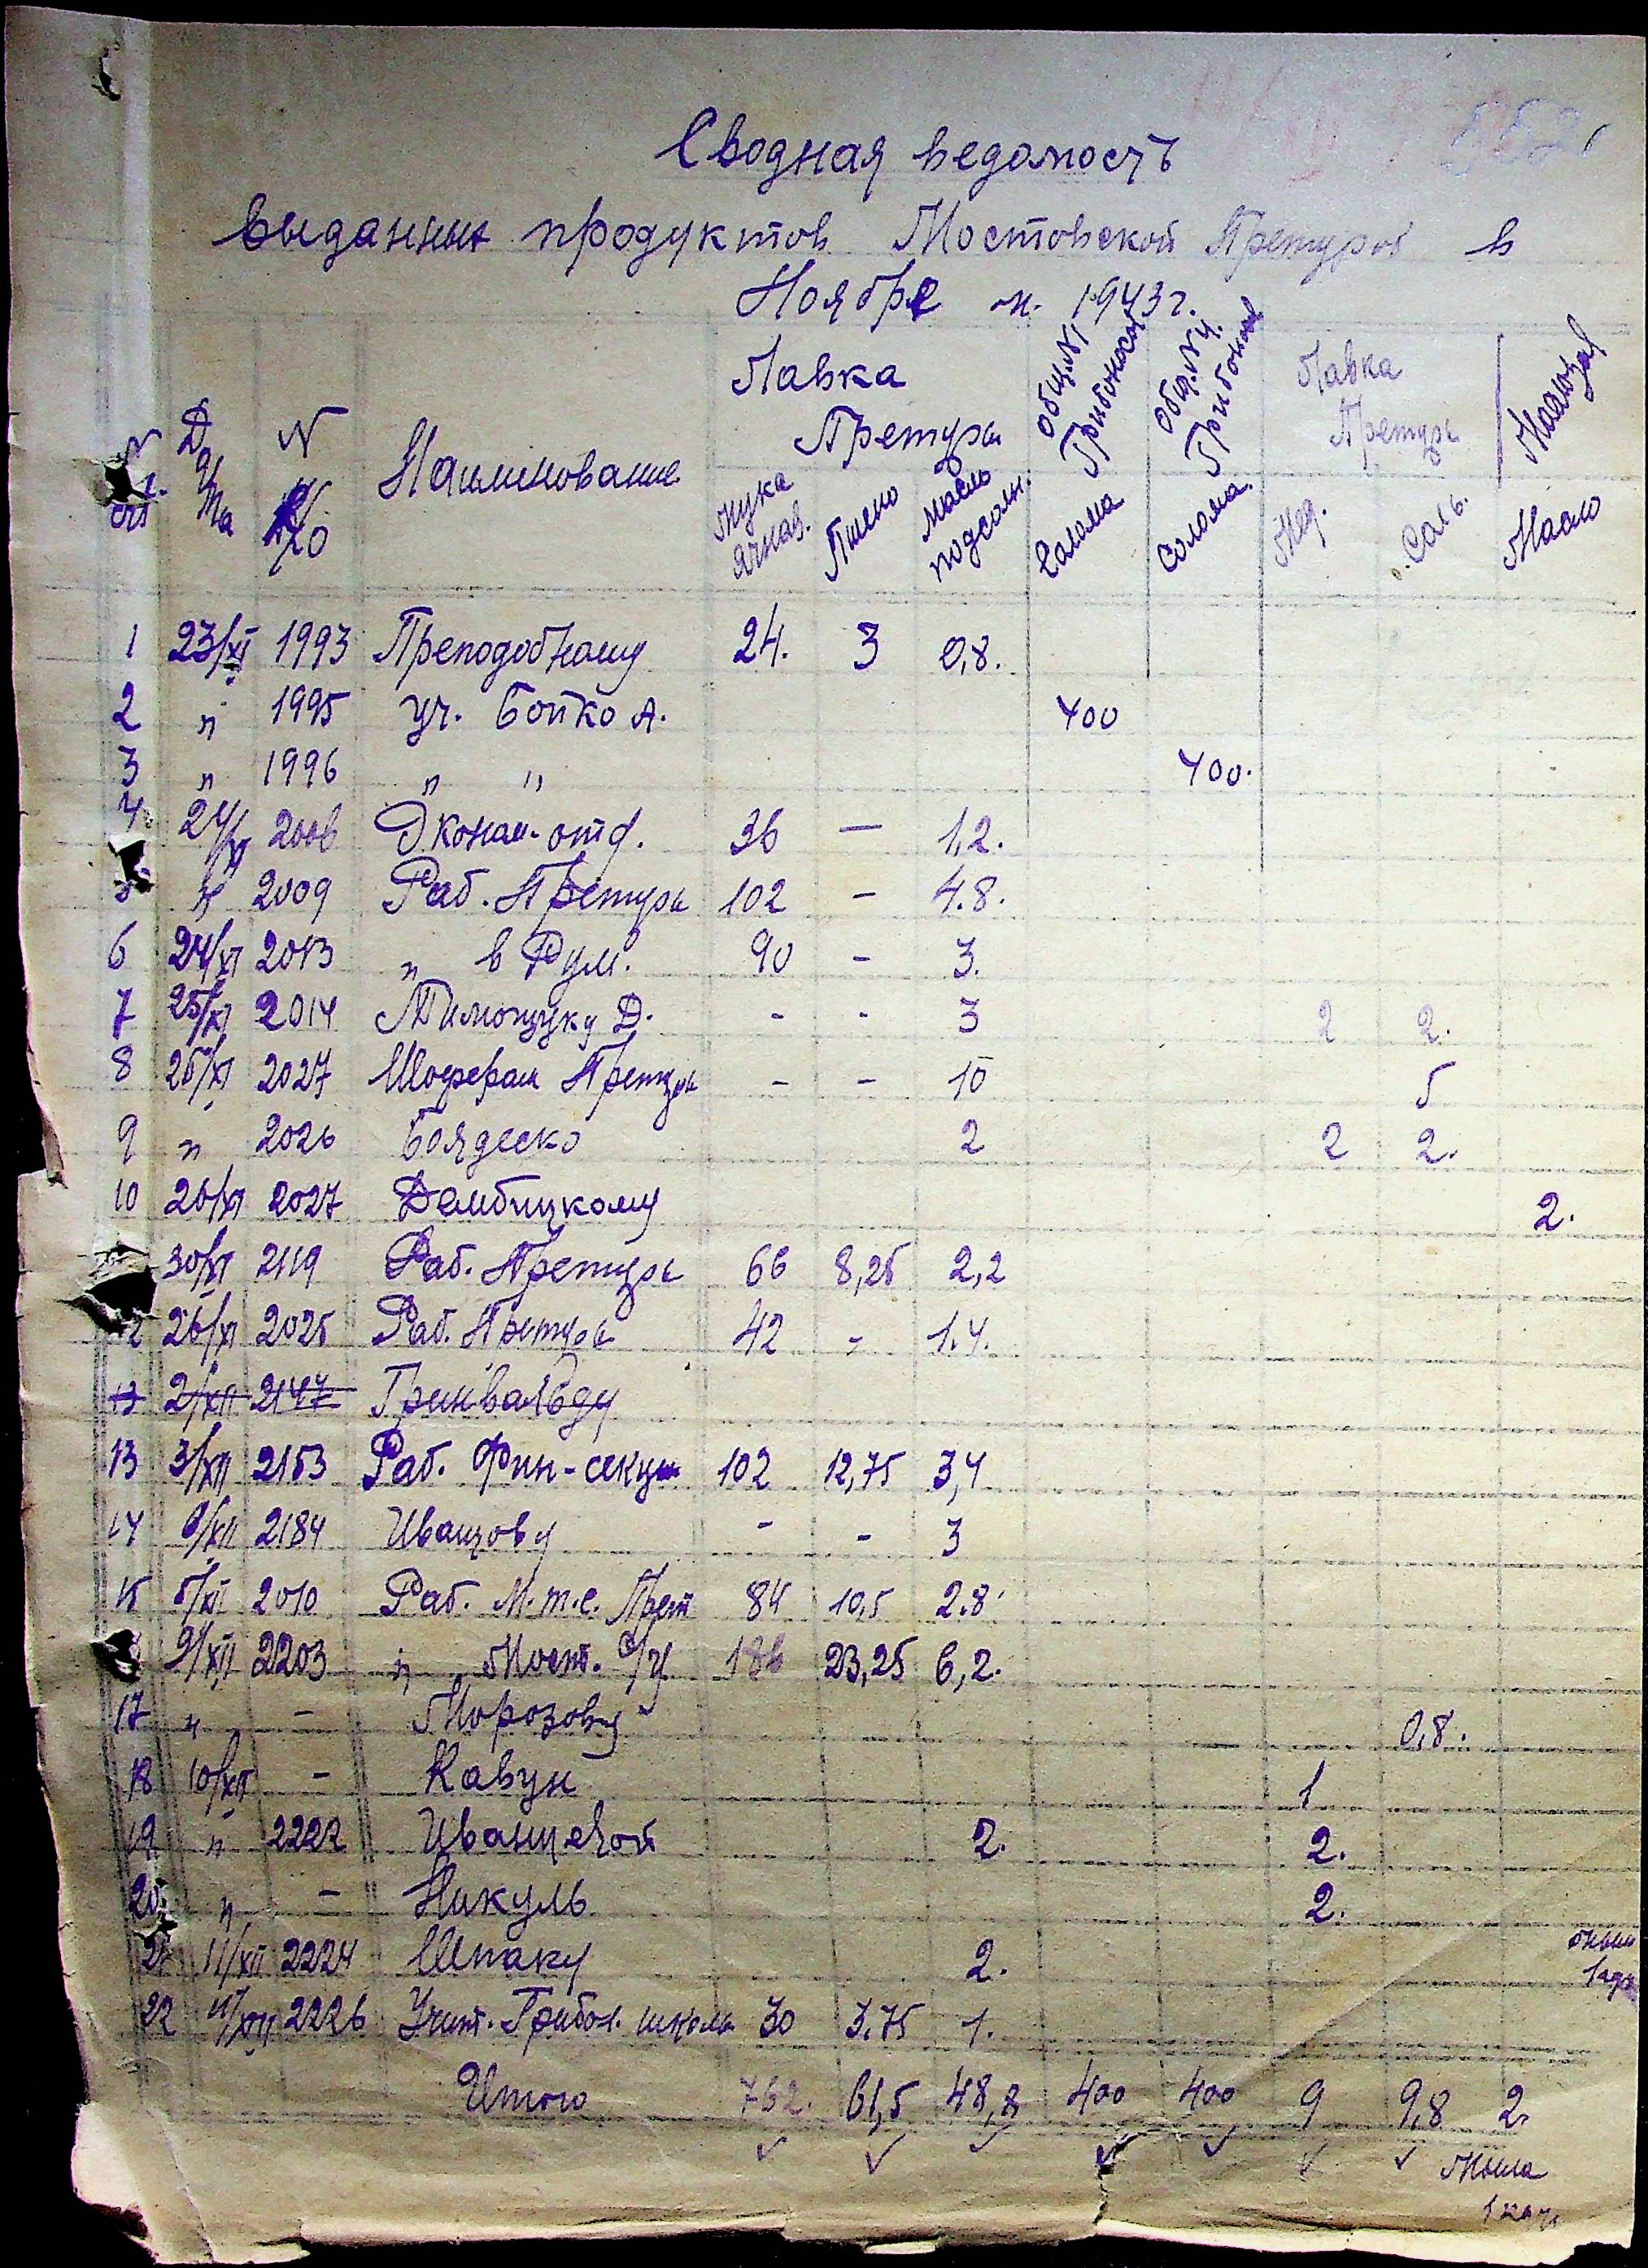 552
Сводная ведомость
выданных продуктов Мостовской Претурой в
Ноябре м. 1943 г.
№ Дата № Наименование Лавка Претуры Общ. №1 Грибоносов Общ. №4 Грибонос Лавка Претуры Маслозав
Мука ячная. Пшено Масло подсолн. Солома Солома Мед. Соль. Масло
1 23/XI 1993 Преподобному 24. 3 0,8.
2 " 1995 уч. Бойко А. 400
3 " 1996 " " 400.
4 24/XI 2006 Эконом. отд. 36 — 1,2.
5 " 2009 Раб. Претуры 102 - 4.8.
6 24/XI 2013 " в Рум. 90 - 3.
7 25/XI 2014 Тимощуку Д. - - 3 2 2.
8 26/XI 2027 Шоферам Претуры - - 10 5
9 " 2026 Боядеско 2 2 2.
10 26/XI 2027 Дембицкому 2.
30/XI 2119 Раб. Претуры 66 8,25 2,2
12 26/XI 2025 Раб. Претуры 42 - 1.4.
13 2/XII 2147 Гринвальду
13 3/XII 2153 Раб. Фин-секции 102 12,75 3,4
14 6/XII 2184 Иванцову - - 3
15 5/XII 2010 Раб. М.т.с. Прет 84 10,5 2.8
9/XII 2203 " Мост. с/у 186 23,25 6,2.
17 " - Морозову 0,8.
18 10/XII - Кавун 1
19 " 2222 Иванцевой 2. 2.
20 " - Никуль 2.
21 11/XII 2224 Шпаку 2. мыла
22 11/XII 2226 Учит. Грибон. школы 30 3.75 1.
Итого 762. 61,5 48,8 400 400 9 9,8 2.
Мыла
1 кач.